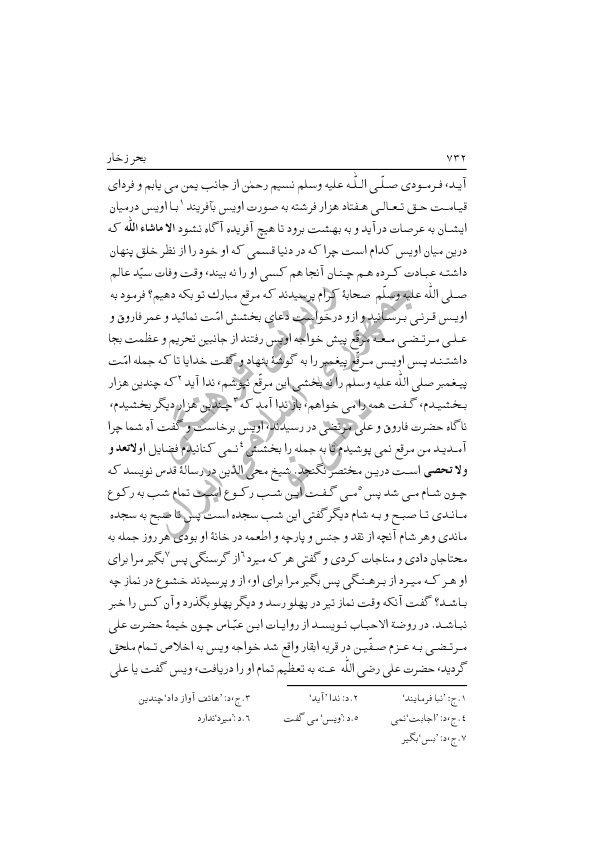 ۷۳۲ بحر زخار
آید، فرمودی صلّی اللّه علیه وسلم نسیم رحمٰن از جانب یمن می یابم و فردای
قیامت حق تعالی هفتاد هزار فرشته به صورت اویس بآفریند۱ با اویس درمیان
ایشان به عرصات درآید و به بهشت برود تا هیچ آفریده آگاه نشود الا ماشاء اللّٰه که
درین میان اویس کدام است چرا که در دنیا قسمی که او خود را از نظر خلق پنهان
داشته عبادت کرده هم چنان آنجا هم کسی او را نه بیند، وقت وفات سیّد عالم
صلی اللّٰه علیه وسلّم صحابهٔ کرام پرسیدند که مرقع مبارك تو بکه دهیم؟ فرمود به
اویس قرنی برسانید و ازو درخواست دعای بخشش امّت نمائید و عمر فاروق و
علی مرتضی معه مرقّع پیش خواجه اویس رفتند از جانبین تحریم و عظمت بجا
داشتند پس اویس مرقّع پیغمبر را به گوشهٔ بنهاد و گفت خدایا تا که جمله امّت
پیغمبر صلی اللّٰه علیه وسلم را نه بخشی این مرقّع نپوشم، ندا آید۲ که چندین هزار
بخشیدم، گفت همه را می خواهم، باز ندا آمد که۳ چندین هزار دیگر بخشیدم،
ناگاه حضرت فاروق و علی مرتضی در رسیدند، اویس برخاست و گفت آه شما چرا
آمدید من مرقع نمی پوشیدم تا به جمله را بخشش۴ نمی کنانیدم فضایل او لاتعد و
ولا تحصی است درین مختصر نگنجد. شیخ محی الدّین در رسالهٔ قدس نویسد که
چون شام می شد پس۵ می گفت این شب رکوع است تمام شب به رکوع
ماندی تا صبح و به شام دیگر گفتی این شب سجده است پس تا صبح به سجده
ماندی و هر شام آنچه از نقد و جنس و پارچه و اطعمه در خانهٔ او بودی هر روز جمله به
محتاجان دادی و مناجات کردی و گفتی هر که میرد۶ از گرسنگی پس۷ بگیر مرا برای
او هر که میرد از برهنگی پس بگیر مرا برای او، از و پرسیدند خشوع در نماز چه
باشد؟ گفت آنکه وقت نماز تیر در پهلو رسد و دیگر پهلو بگذرد و آن کس را خبر
نباشد. در روضة الاحباب نویسد از روایات ابن عبّاس چون خیمهٔ حضرت علی
مرتضی به عزم صفّین در قریه ابقار واقع شد خواجه ویس به اخلاص تمام ملحق
گردید، حضرت علی رضی اللّٰه عنه به تعظیم تمام او را دریافت، ویس گفت یا علی
۱.ج: 'نبا فرمایند' ۲.د: ندا 'آید' ۳.ج،د: 'هاتف آواز داد' چندین
۴.ج،د: 'اجابت' نمی ۵.د: 'ویس' می گفت ۶.د: 'میرد' ندارد
۷.ج،د: 'بس' بگیر